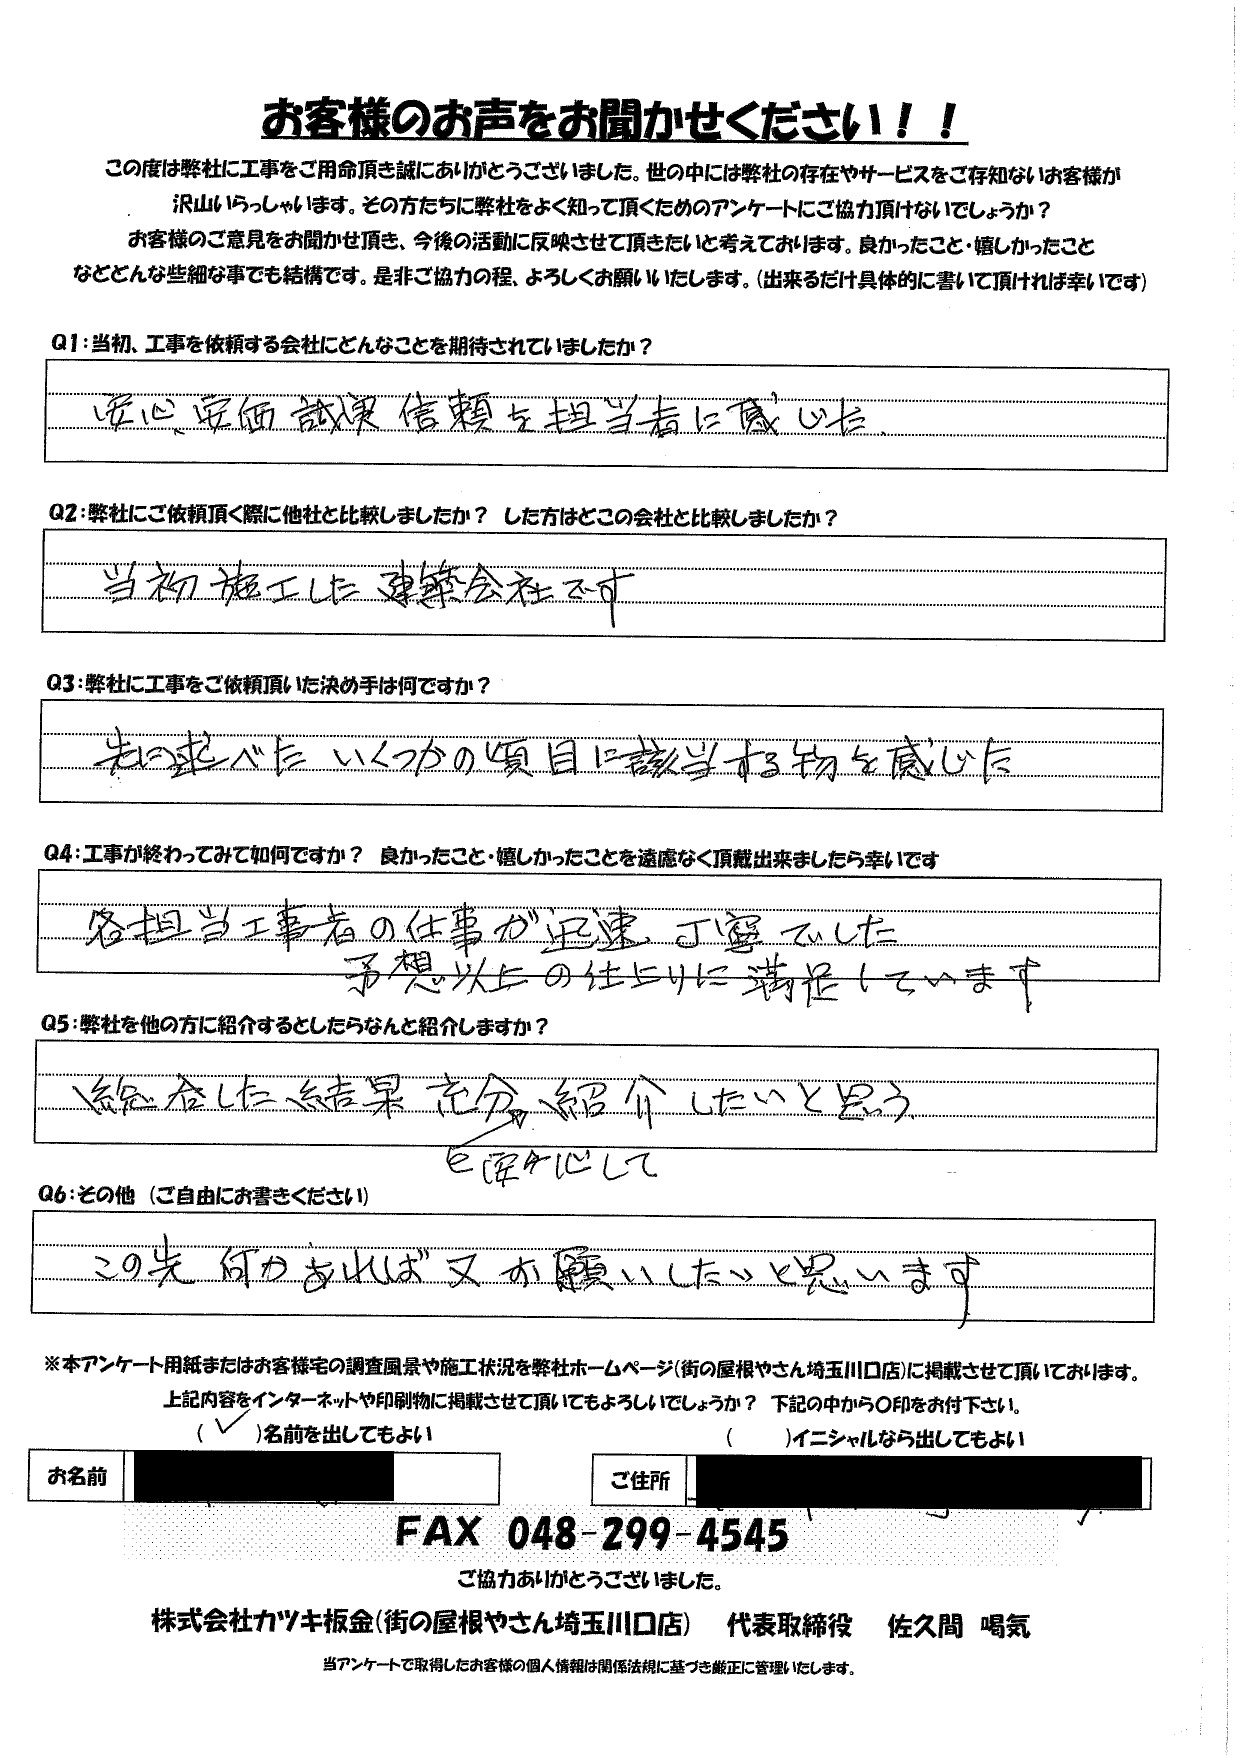 お客様のお声をお聞かせください！！
この度は弊社に工事をご用命頂き誠にありがとうございました。世の中には弊社の存在やサービスをご存知ないお客様が
沢山いらっしゃいます。その方たちに弊社をよく知って頂くためのアンケートにご協力頂けないでしょうか？
お客様のご意見をお聞かせ頂き、今後の活動に反映させて頂きたいと考えております。良かったこと・嬉しかったこと
などどんな些細な事でも結構です。是非ご協力の程、よろしくお願いいたします。（出来るだけ具体的に書いて頂ければ幸いです）
Q1：当初、工事を依頼する会社にどんなことを期待されていましたか？
安心、安価 誠実 信頼を担当者に感じた.
Q2：弊社にご依頼頂く際に他社と比較しましたか？ した方はどこの会社と比較しましたか？
当初施工した建築会社です
Q3：弊社に工事をご依頼頂いた決め手は何ですか？
先に述べた いくつかの項目に該当する物を感じた
Q4：工事が終わってみて如何ですか？ 良かったこと・嬉しかったことを遠慮なく頂戴出来ましたら幸いです
各担当工事者の仕事が迅速 丁寧でした
予想以上の仕上りに満足しています
Q5：弊社を他の方に紹介するとしたらなんと紹介しますか？
総合した結果 充分 紹介したいと思う.
安心して
Q6：その他（ご自由にお書きください）
この先 何かあれば又お願いしたいと思います
※本アンケート用紙またはお客様宅の調査風景や施工状況を弊社ホームページ（街の屋根やさん埼玉川口店）に掲載させて頂いております。
上記内容をインターネットや印刷物に掲載させて頂いてもよろしいでしょうか？ 下記の中から〇印をお付下さい。
（✓）名前を出してもよい （ ）イニシャルなら出してもよい
お名前 ご住所
FAX 048-299-4545
ご協力ありがとうございました。
株式会社カツキ板金（街の屋根やさん埼玉川口店） 代表取締役 佐久間 喝気
当アンケートで取得したお客様の個人情報は関係法規に基づき厳正に管理いたします。